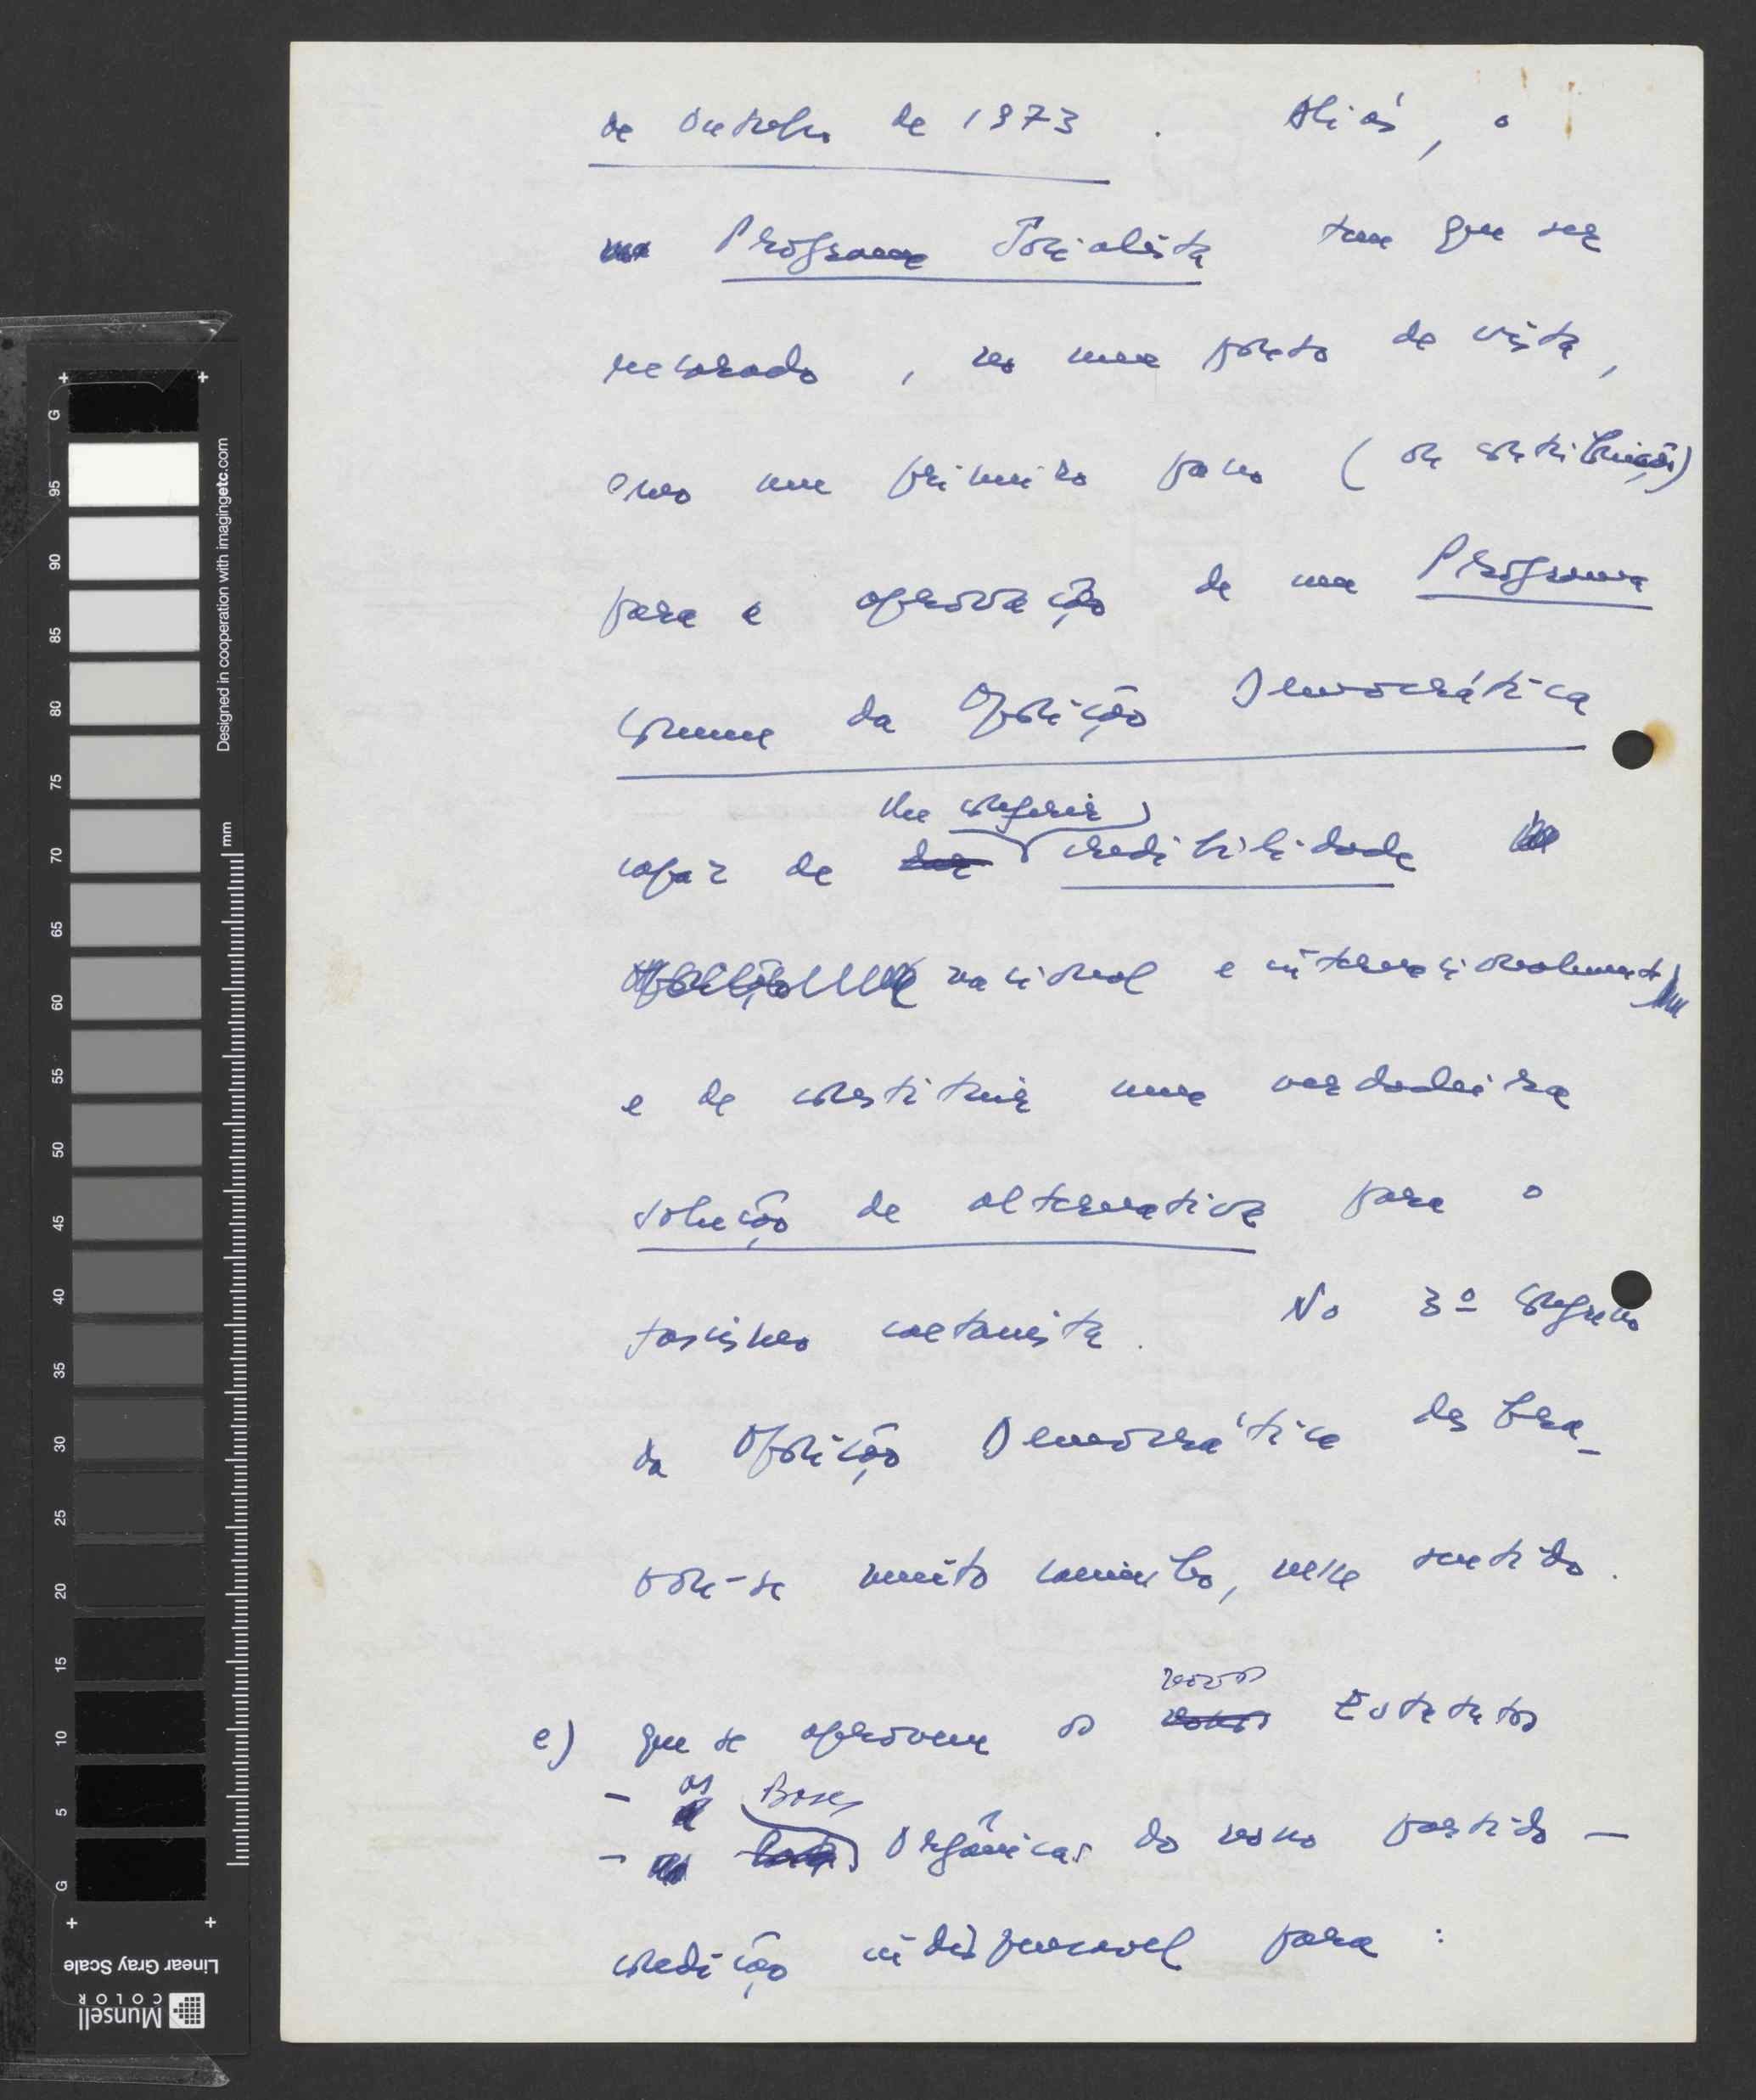 de Outubro de 1973. Aliás, o
Programa Socialista tem que ser
encarado, no meu ponto de vista,
como um primeiro passo (ou contribuição)
para a aprovação de um Programa
comum da Oposição Democrática
lhe conferir
capaz de dar credibilidade
Oposição nacional e internacionalmente
e de constituir uma verdadeira
solução de alternativa para o
fascismo caetanista. No 3º Congresso
da Oposição Democrática desbra-
vou-se muito caminho, nesse sentido.
novos
e) que se aprovem os novos Estatutos
- as Bases
- Orgânicas do novo partido -
condição indispensavel para:
95
90
85
80
75
70
65
60
55
50
45
40
35
30
25
20
15
10
5
G
G
mm
Designed in cooperation with imagingetc.com
Linear Gray Scale
Munsell
COLOR